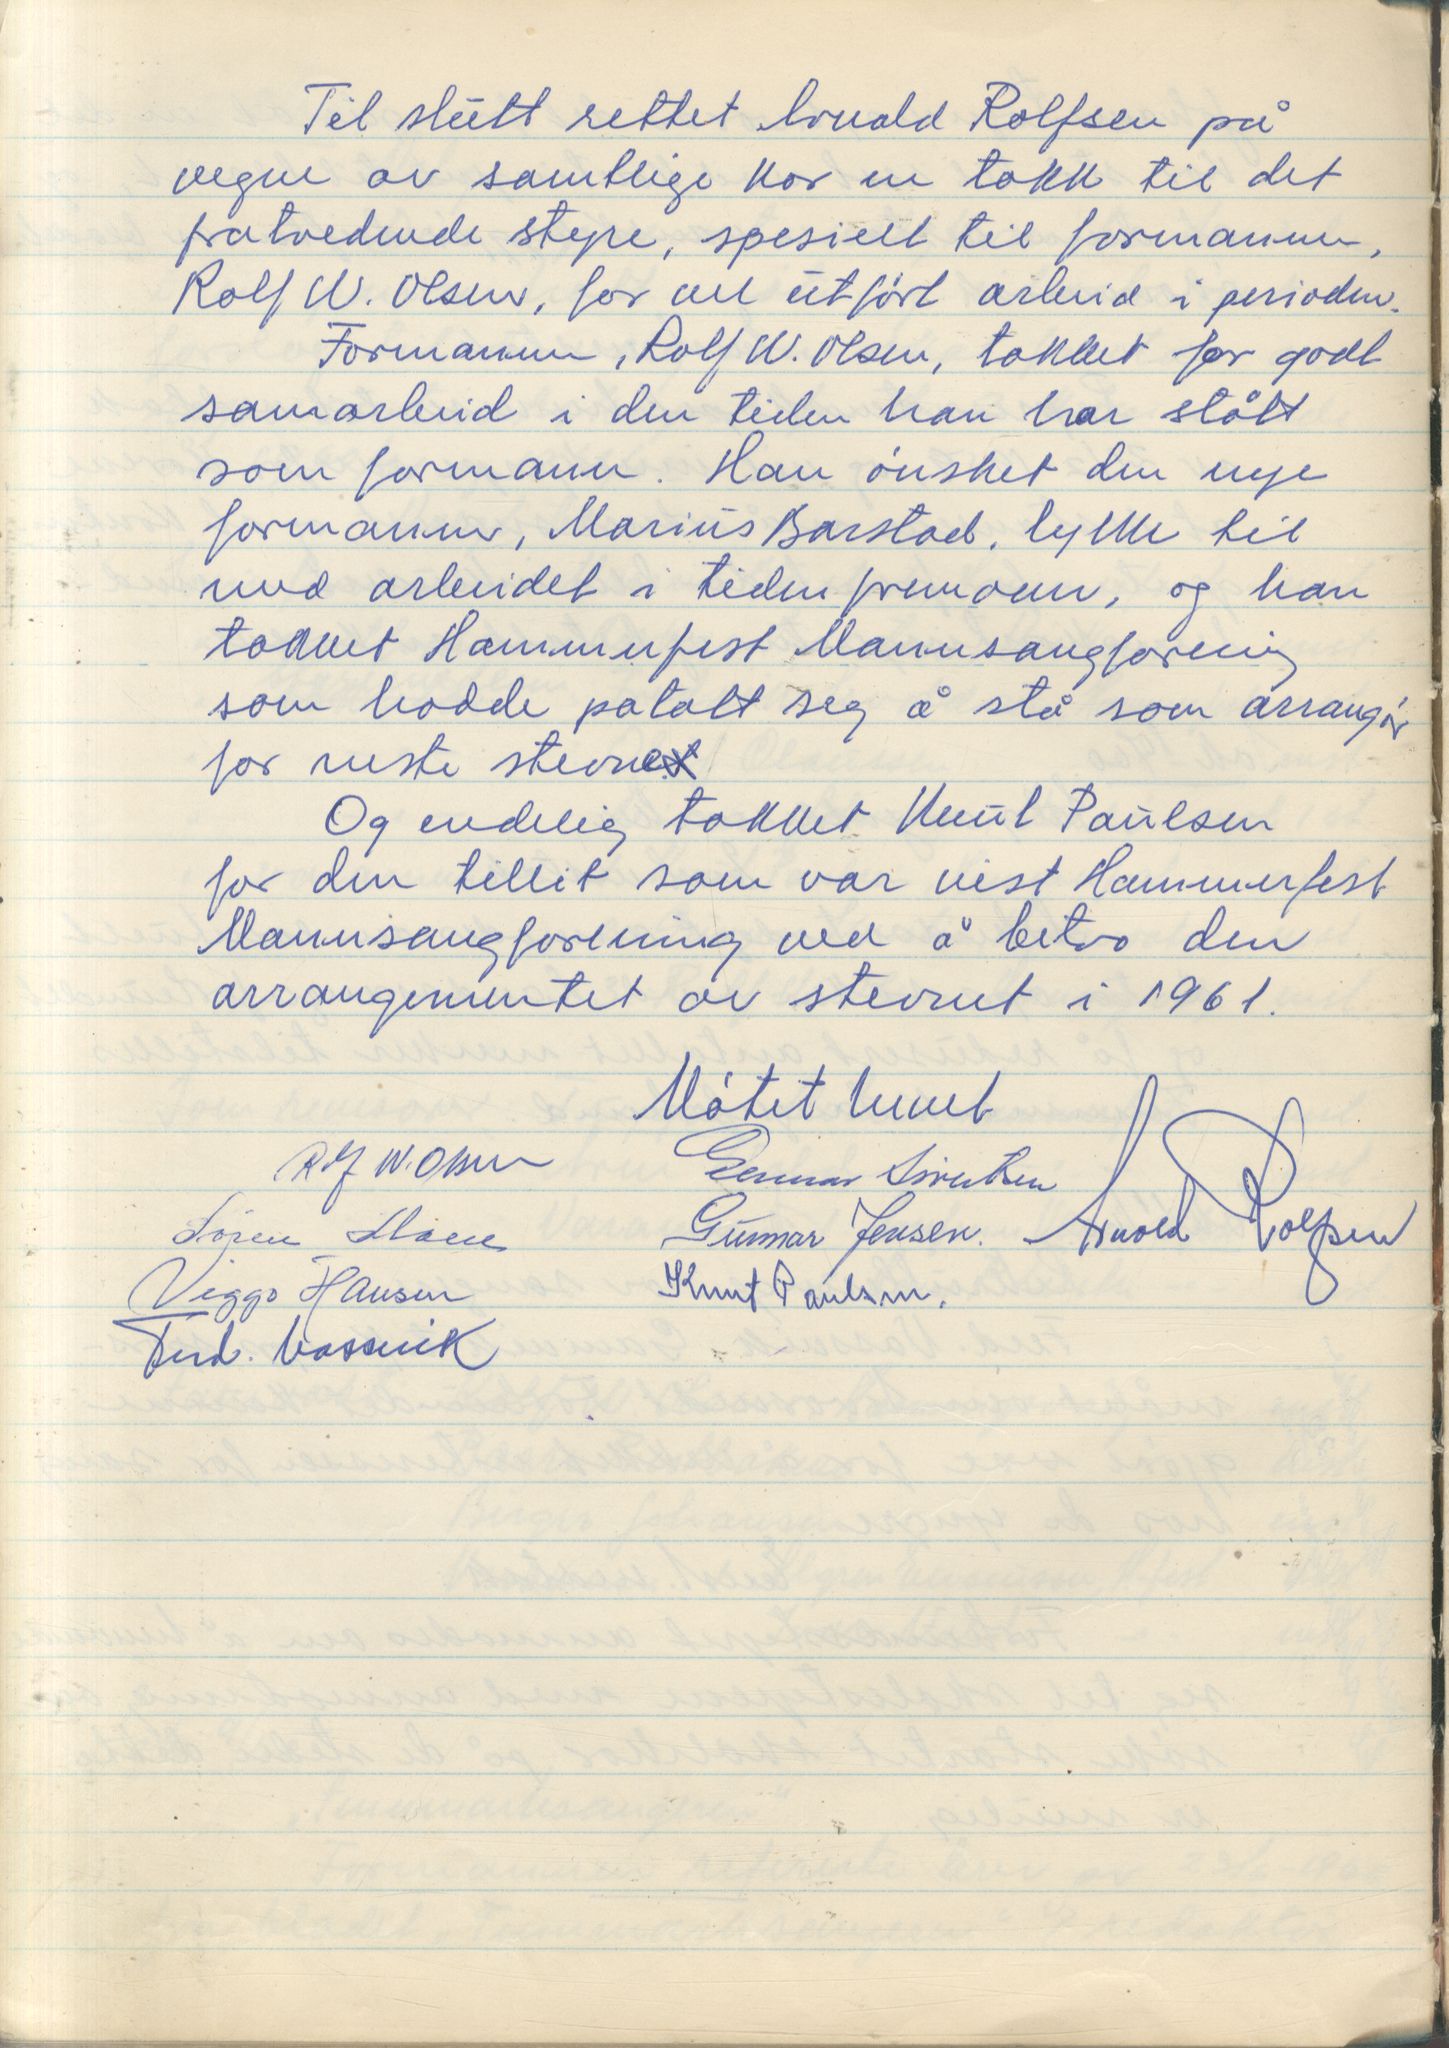 Til slutt rettet Arnold Rolfsen på
vegne av samtlige kor en takk til det
fratredende styre, spesielt til formannen,
Rolf W. Olsen, for vel utført arbeid i perioden.
Formannen, Rolf W. Olsen, takket for godt
samarbeid i den tiden han har stått
som formann. Han ønsket den nye
formannen, Marius Barstad, lykke til
med arbeidet i tiden fremover, og han
takket Hammerfest Mannsangforening
som hadde påtatt seg å stå som arrangør
for neste stevne
Og endelig takket Knut Paulsen
for den tillit som var vist Hammerfest
Mannsangforening ved å betro den
arrangementet av stevnet i 1961.
Møtet hevet
Rolf W. Olsen
Gunnar Sivertsen
Søren
Gunnar Jensen.
Arnold Rolfsen
Viggo Hansen
Knut Paulsen.
Ferd. Vassvik